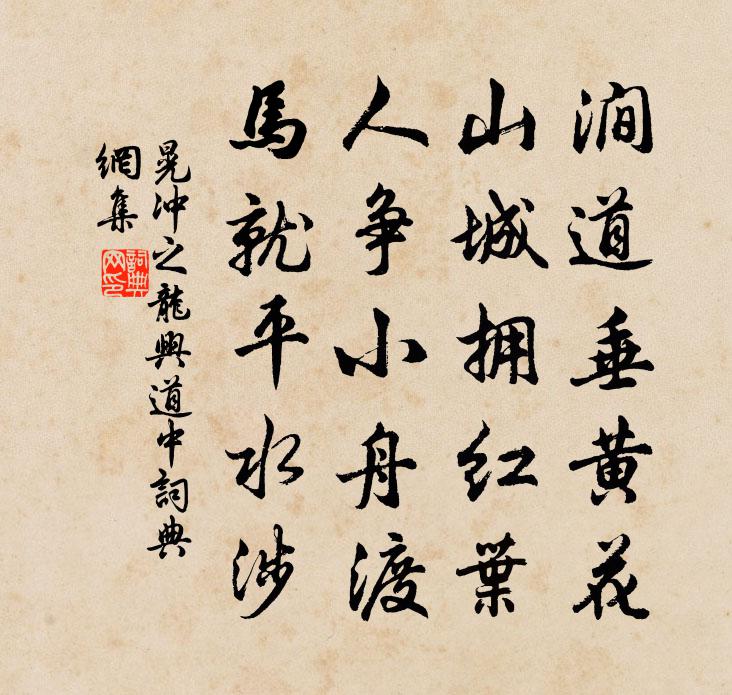 澗道垂黄花
山城拥红葉
人争小舟渡
馬就平水涉
晁沖之龍興道中詞典
網集
詞典网印